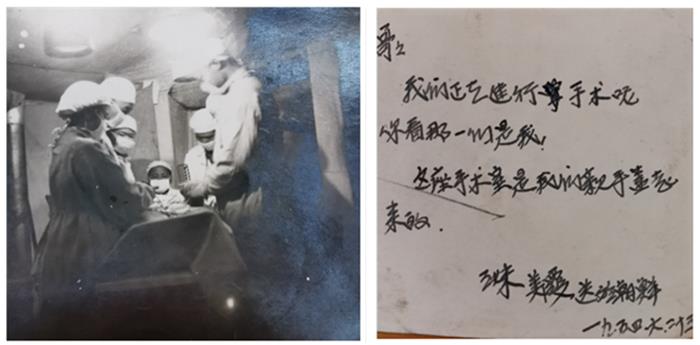 哥:
我们正在进行手术呢
你看那一个是我!
这座手术室是我们亲手盖起
来的.
妹 美 送
一九五四.六.二十三